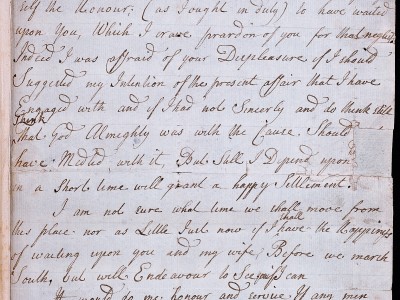 self the Honour, (as I ought in duty) to have waited
upon You, Which I crave prardon of you for that neglect
Indeed I was affraid of your Despleasure if I should
Suggested my Intention of the present affair that I have
Engaged with and if I had not Sincerly and do think still
think
That God Almeghty was with the Cause. Should
have Medled with it, But Still I Depend upon
in a Short time will grant a happy Settlement.
I am not sure what time we shall move from
shall
this place nor as Little Suct now if I have the Happiness
of waiting upon you and my wife, Before we march
South, but will Endeavour to See if I can
It would do me honour and service If any men